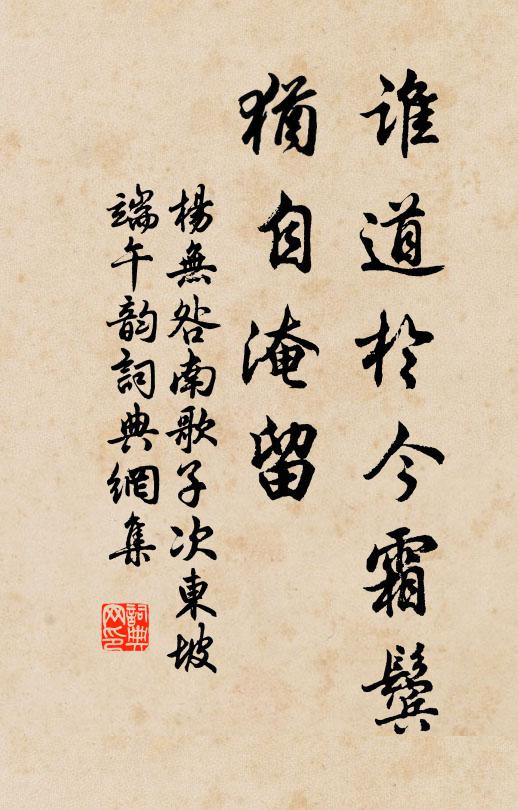 誰道於今霜鬢
猶自淹留
楊無咎南歌子次東坡
端午韵詞典網集
詞典
网印